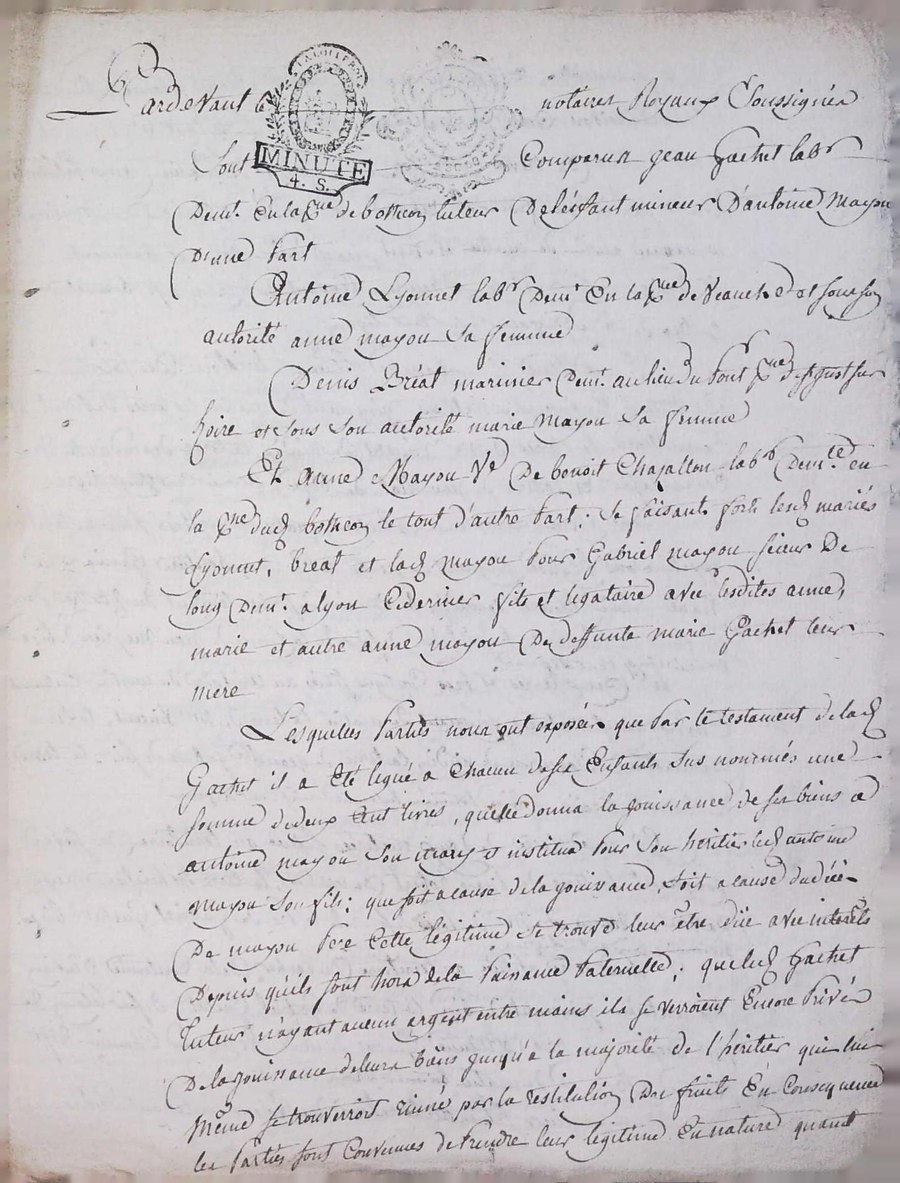 Pardevant notaires Royaux Soussignés
LA COLLEROY
MINUTE
4. S.
Sont Comparus jean Gachet labr
demt. en la pse de bothéon tuteur de lésfant mineur d'antoine Mayou
d'une part
Antoine Lyonnet labr demt en la pse de veauche et sous son
autorité anne mayou sa femme
Denis Bréat marinier demt. au lieu du port pse de st just sur
loire et sous son autorité marie Mayou sa femme
Et anne Mayou Ve de benoit Chazallon labr demte en
la pse dud bothéon le tout d'autre part; se faisants forts lesd mariés
Lyonnet, breat et lad mayou pour Gabriel mayou sieur De
long demt. a lyon ce dernier fils et legataire avec lesdites anne,
marie et autre anne mayou de deffunte marie Gachet leur
mere
Lesquelles Parties nous ont exposées que Par le testament de lad
Gachet il a été legué a Chacun de ses Enfants sus nommés une
somme de deux Cent livres, qu'elle donna la jouissance de ses biens a
antoine mayou son mary et institua Pour son heritier led antoine
mayou son fils; que soit a cause de la jouissance, soit a cause du déce-
de mayou Pere Cette légitime se trouve leur être düe avec interêts
Depuis qu'ils sont hors de la Puissance Paternelle; que led Gachet
tuteur n'ayant aucun argent entre mains ils se verroient Encore Privés
De la jouissance de leurs biens jusqu'a la majorité de l'héritier qui lui
Même se trouverroit ruiné par la restitution Des fruits En Conséquence
les Parties sont Convenues de Prendre leur légitime En nature quant